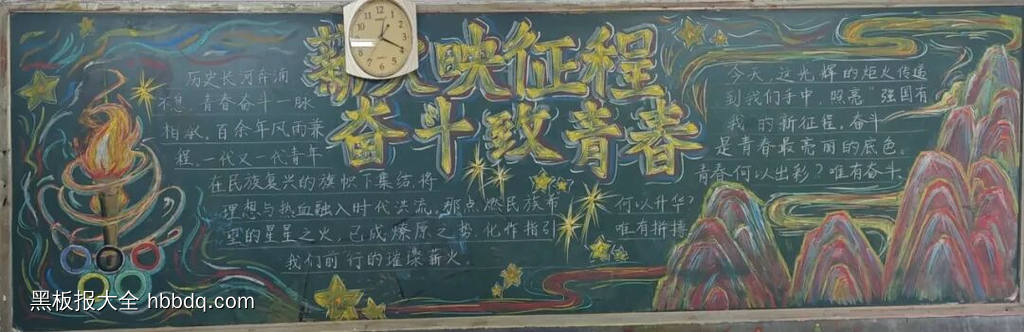 新火映征程
奋斗致青春
历史长河奔涌
不息,青春奋斗一脉
相承。百余年风雨兼
程,一代又一代青年
在民族复兴的旗帜下集结,将
理想与热血融入时代洪流。那点燃民族希
望的星星之火,已成燎原之势,化作指引
我们前行的璀璨薪火。
今天,这光辉的炬火传递
到我们手中,照亮“强国有
我”的新征程。奋斗
是青春最亮丽的底色。
青春何以出彩?唯有奋斗
何以升华?
唯有拼搏
黑板报大全 hbbdq.com